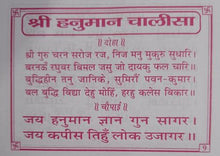 श्री हनुमान चालीसा
॥ दोहा ॥
श्री गुरु चरन सरोज रज, निज मनु मुकुरु सुधारि।
बरनऊँ रघुबर बिमल जसु जो दायकु फल चारि॥
बुद्धिहीन तनु जानिके, सुमिरौं पवन-कुमार।
बल बुद्धि विद्या देहु मोहिं, हरहु कलेस बिकार॥
॥ चौपाई ॥
जय हनुमान ज्ञान गुन सागर।
जय कपीस तिहुँ लोक उजागर॥